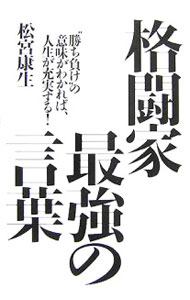 格闘家
最強の
言葉
“勝ち負け”の
意味がわかれば、
人生が充実する！
松宮康生